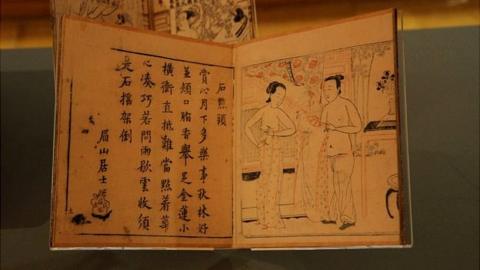 石點頭
賞心月下多樂事秋林好
並頰口脂香舉足金蓮小
橫衝直抵難當點着
心湊巧若問雨歇雲收須
是石檔架倒
眉山居士